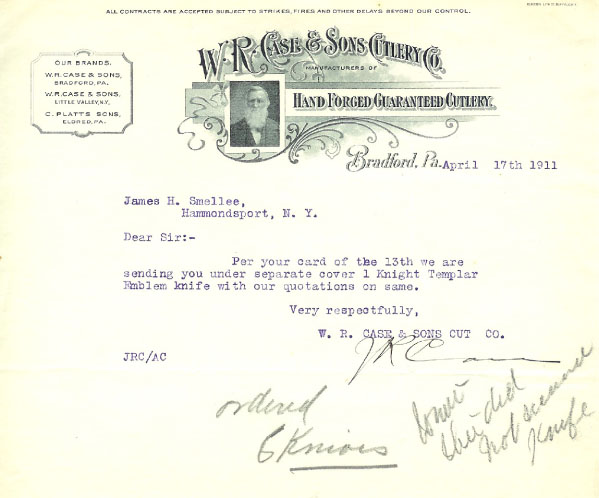 ALL CONTRACTS ARE ACCEPTED SUBJECT TO STRIKES, FIRES AND OTHER DELAYS BEYOND OUR CONTROL.
OUR BRANDS.
W.R. CASE & SONS,
BRADFORD, PA.
W.R. CASE & SONS,
LITTLE VALLEY, N.Y.
C. PLATTS SONS,
ELDRED, PA.
W. R. CASE & SONS CUTLERY CO.
MANUFACTURERS OF
HAND FORGED GUARANTEED CUTLERY.
Bradford, Pa. April 17th 1911
James H. Smellee,
Hammondsport, N. Y.
Dear Sir:-
Per your card of the 13th we are
sending you under separate cover 1 Knight Templar
Emblem knife with our quotations on same.
Very respectfully,
W. R. CASE & SONS CUT CO.
JRC/AC
ordered
6
did
not
Knife